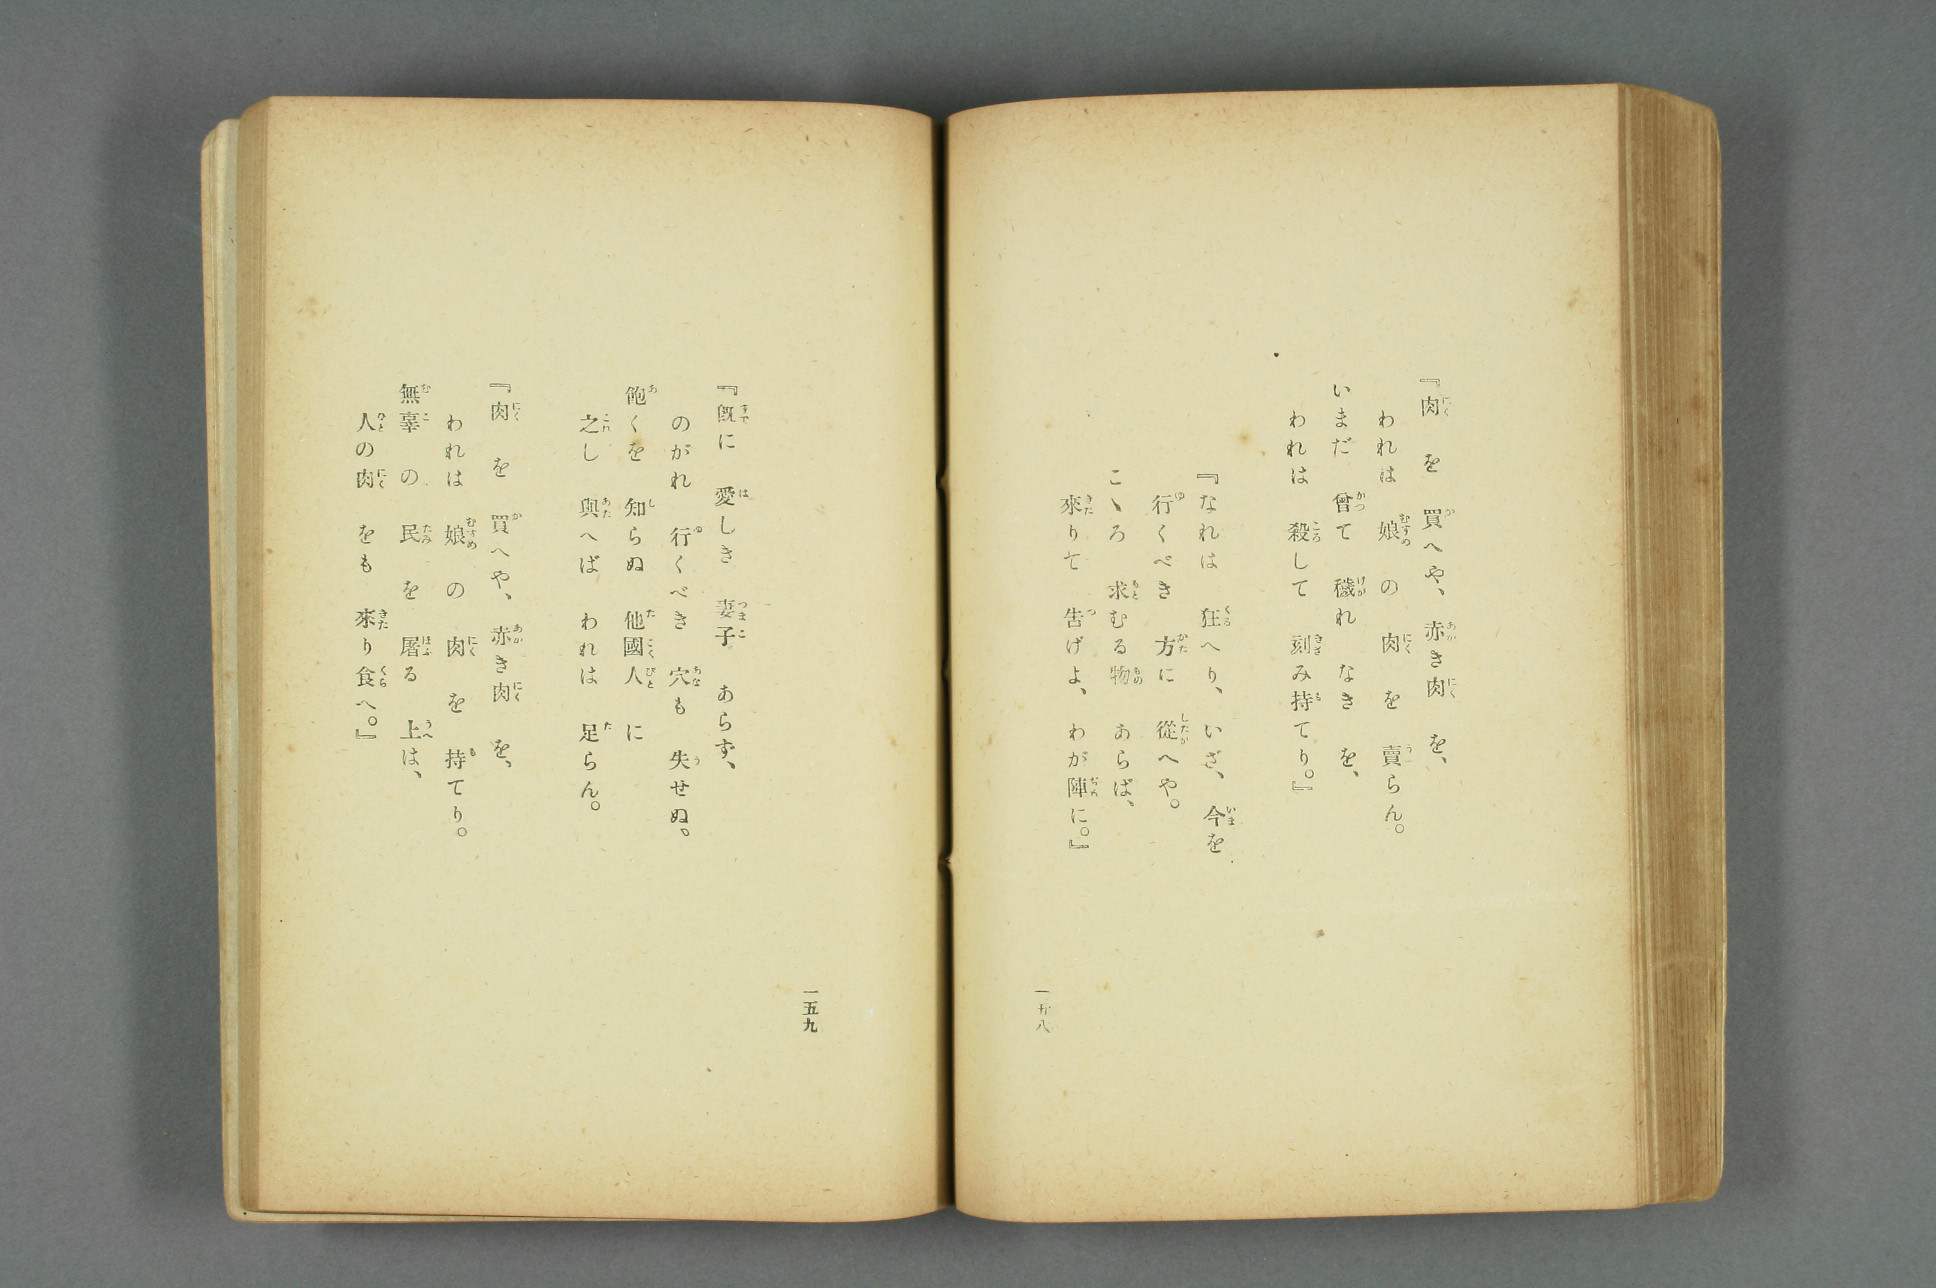 『肉を買へや、赤き肉を、
われは娘の肉を賣らん。
いまだ曾て穢れなきを、
われは殺して刻み持てり。』
『なれは狂へり、いざ、今を
行くべき方に從へや。
こゝろ求むる物あらば、
來りて告げよ、わが陣に。』
一五八
『既に愛しき妻子あらず、
のがれ行くべき穴も失せぬ。
飽くを知らぬ他國人に
之し與へば われは足らん。
『肉を買へや、赤き肉を、
われは娘の肉を持てり。
無辜の民を屠る上は、
人の肉をも來り食へ。』
一五九